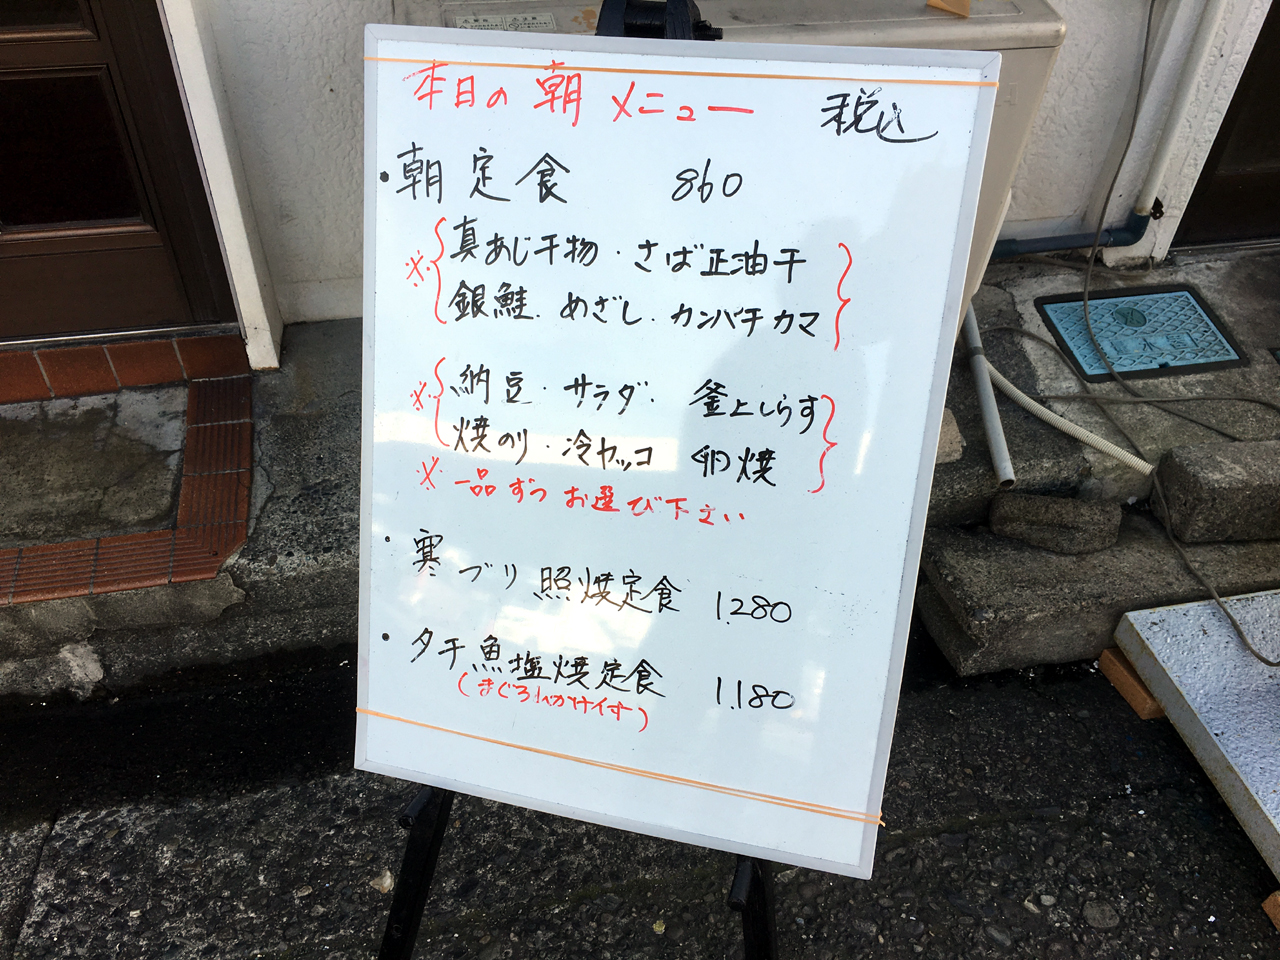 本日の朝メニュー 税込
・朝定食 860
※真あじ干物・さば正油干
銀鮭・めざし・カンパチカマ
※納豆・サラダ・釜上しらす
焼のり・冷ヤッコ 卵焼
※一品ずつお選び下さい
・寒ブリ照焼定食 1.280
・タチ魚塩焼定食 1.180